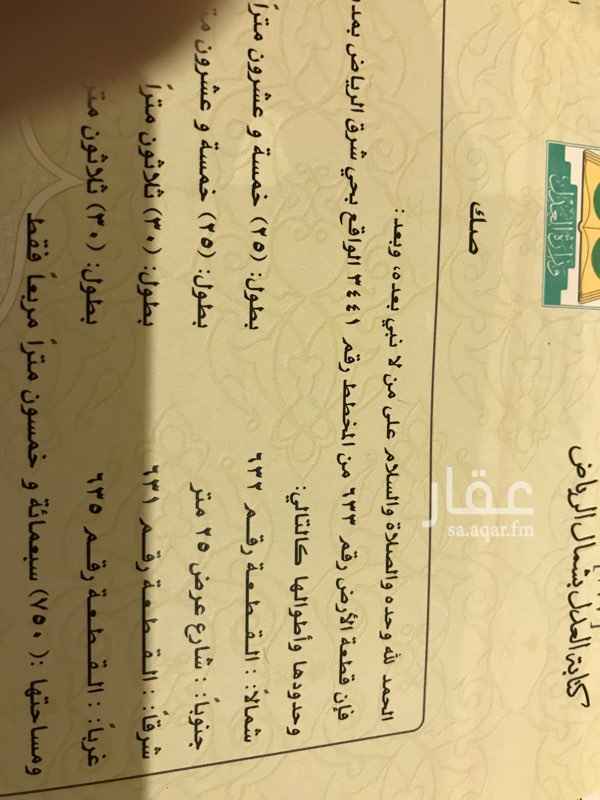 وزارة العدل
كتابة العدل بشمال الرياض
صك
الحمد لله وحده والصلاة والسلام على من لا نبي بعده، وبعد:
فإن قطعة الأرض رقم ٦٣٣ من المخطط رقم ٣٤٤١ الواقع بحي شرق الرياض
وحدودها وأطوالها كالتالي:
شمالاً: : القطعة رقم ٦٣٢ بطول: (٢٥) خمسة و عشرون متراً
جنوباً: : شارع عرض ٢٥ متر بطول: (٢٥) خمسة و عشرون
شرقاً: : القطعة رقم ٦٣١ بطول: (٣٠) ثلاثون متراً
غرباً: : القطعة رقم ٦٣٥ بطول: (٣٠) ثلاثون
ومساحتها :(٧٥٠) سبعمائة و خمسون متراً مربعاً فقط
عقار
sa.aqar.fm